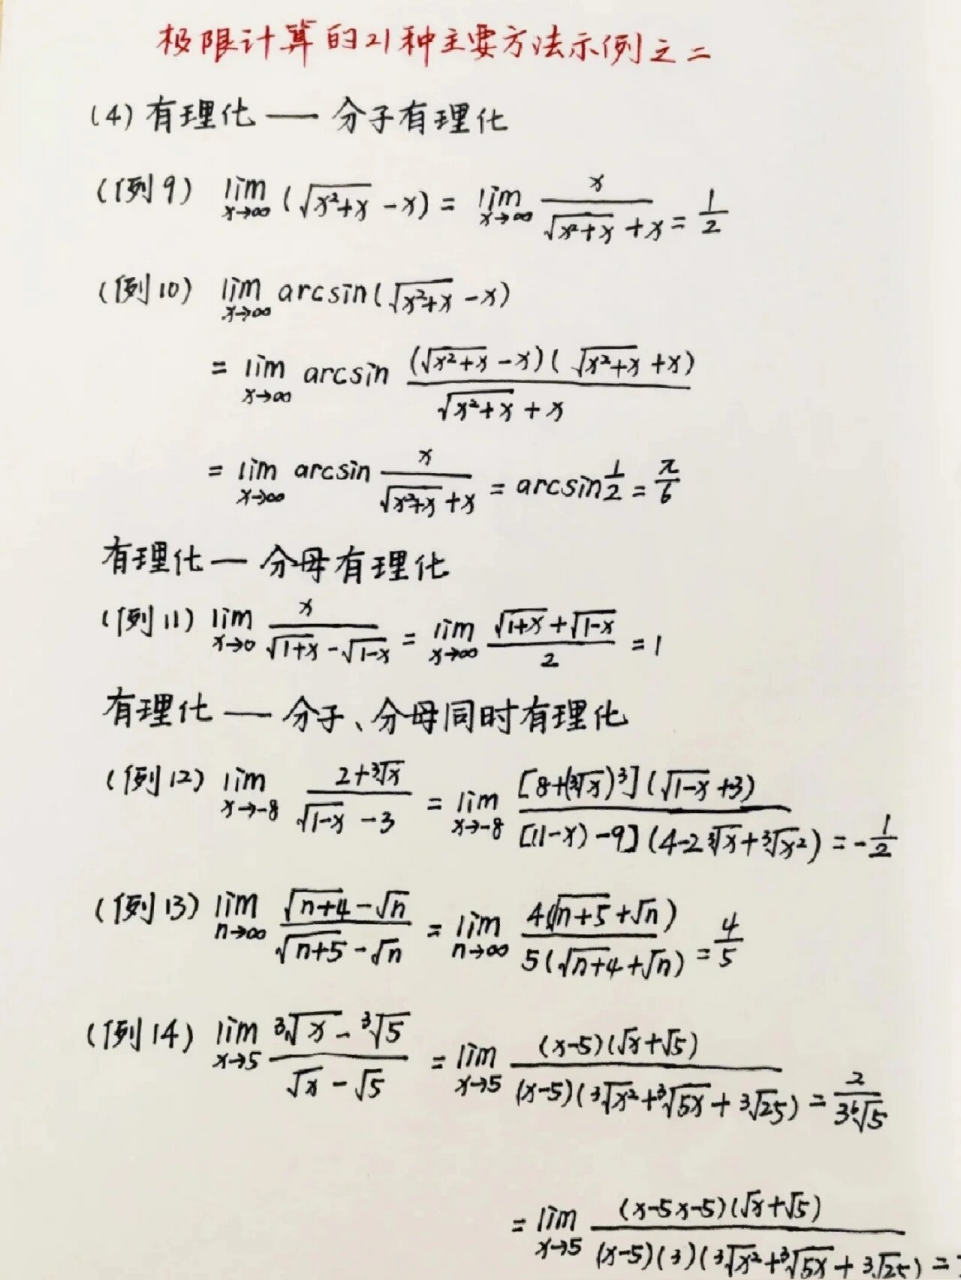 极限计算的21种主要方法示例之二
(4) 有理化 — 分子有理化
(例9) lim x→∞ (√(x²+x) - x) = lim x→∞ x/(√(x²+x) + x) = 1/2
(例10) lim x→∞ arcsin(√(x²+x) - x)
= lim x→∞ arcsin (√(x²+x) - x)(√(x²+x) + x)/(√(x²+x) + x)
= lim x→∞ arcsin x/(√(x²+x) + x) = arcsin 1/2 = π/6
有理化 — 分母有理化
(例11) lim x→0 x/(√(1+x) - √(1-x)) = lim x→∞ (√(1+x) + √(1-x))/2 = 1
有理化 — 分子、分母同时有理化
(例12) lim x→-8 (2+³√x)/(√(1-x) - 3) = lim x→-8 [8+(³√x)³](√(1-x) +3)/[(1-x)-9](4-2³√x+³√x²) = -1/2
(例13) lim n→∞ (√(n+4) - √n)/(√(n+5) - √n) = lim n→∞ 4(√(n+5) + √n)/5(√(n+4) + √n) = 4/5
(例14) lim x→5 (³√x - ³√5)/(√x - √5) = lim x→5 (x-5)(√x+√5)/(x-5)(³√x²+³√5x + ³√25) = 2/3⁶√5
= lim x→5 (x-5x-5)(√x+√5)/(x-5)(3)(³√x²+³√5x + ³√25) =